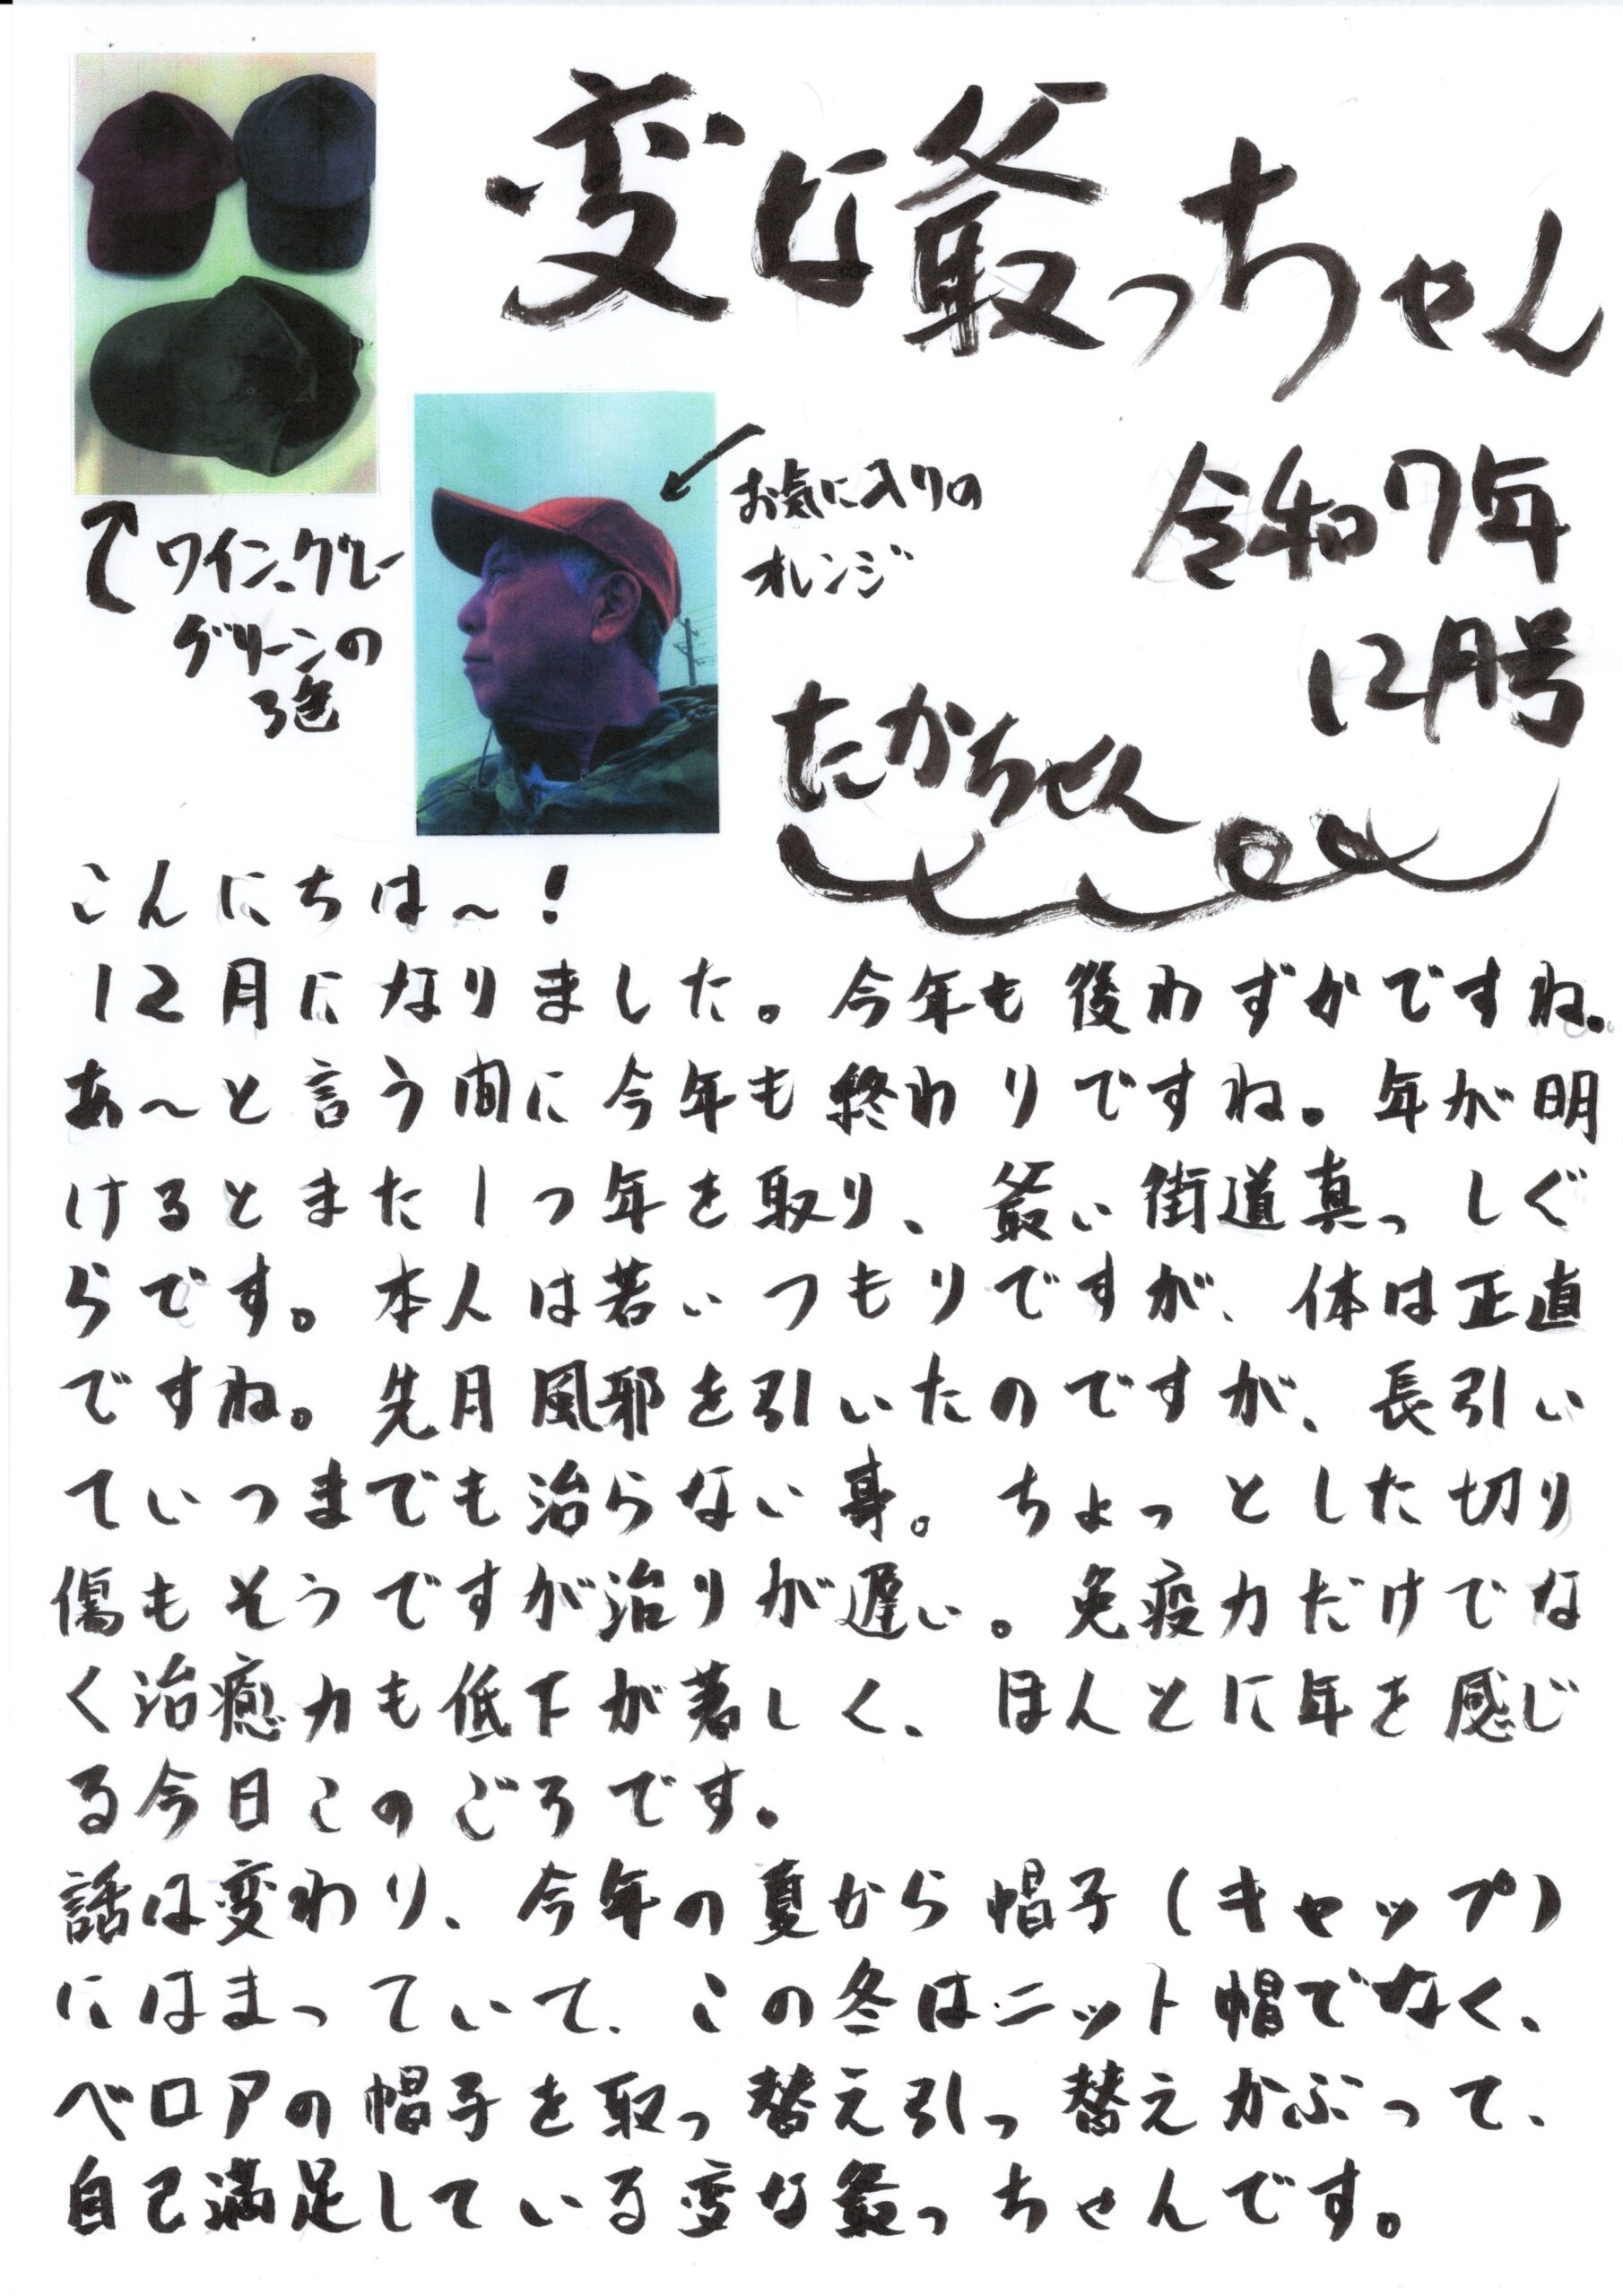 変な爺っちゃん
令和7年
12月号
たかちゃん
お気に入りの
オレンジ
ワイン、グレー
グリーンの
3色
こんにちは～！
12月になりました。今年も後わずかですね。
あ～と言う間に今年も終わりですね。年が明
けるとまた1つ年を取り、爺い街道真っしぐ
らです。本人は若いつもりですが、体は正直
ですね。先月風邪を引いたのですが、長引い
ていつまでも治らない事。ちょっとした切り
傷もそうですが治りが遅い。免疫力だけでな
く治癒力も低下が著しく、ほんとに年を感じ
る今日このごろです。
話は変わり、今年の夏から帽子（キャップ）
にはまっていて、この冬はニット帽でなく、
ベロアの帽子を取っ替え引っ替えかぶって、
自己満足している変な爺っちゃんです。